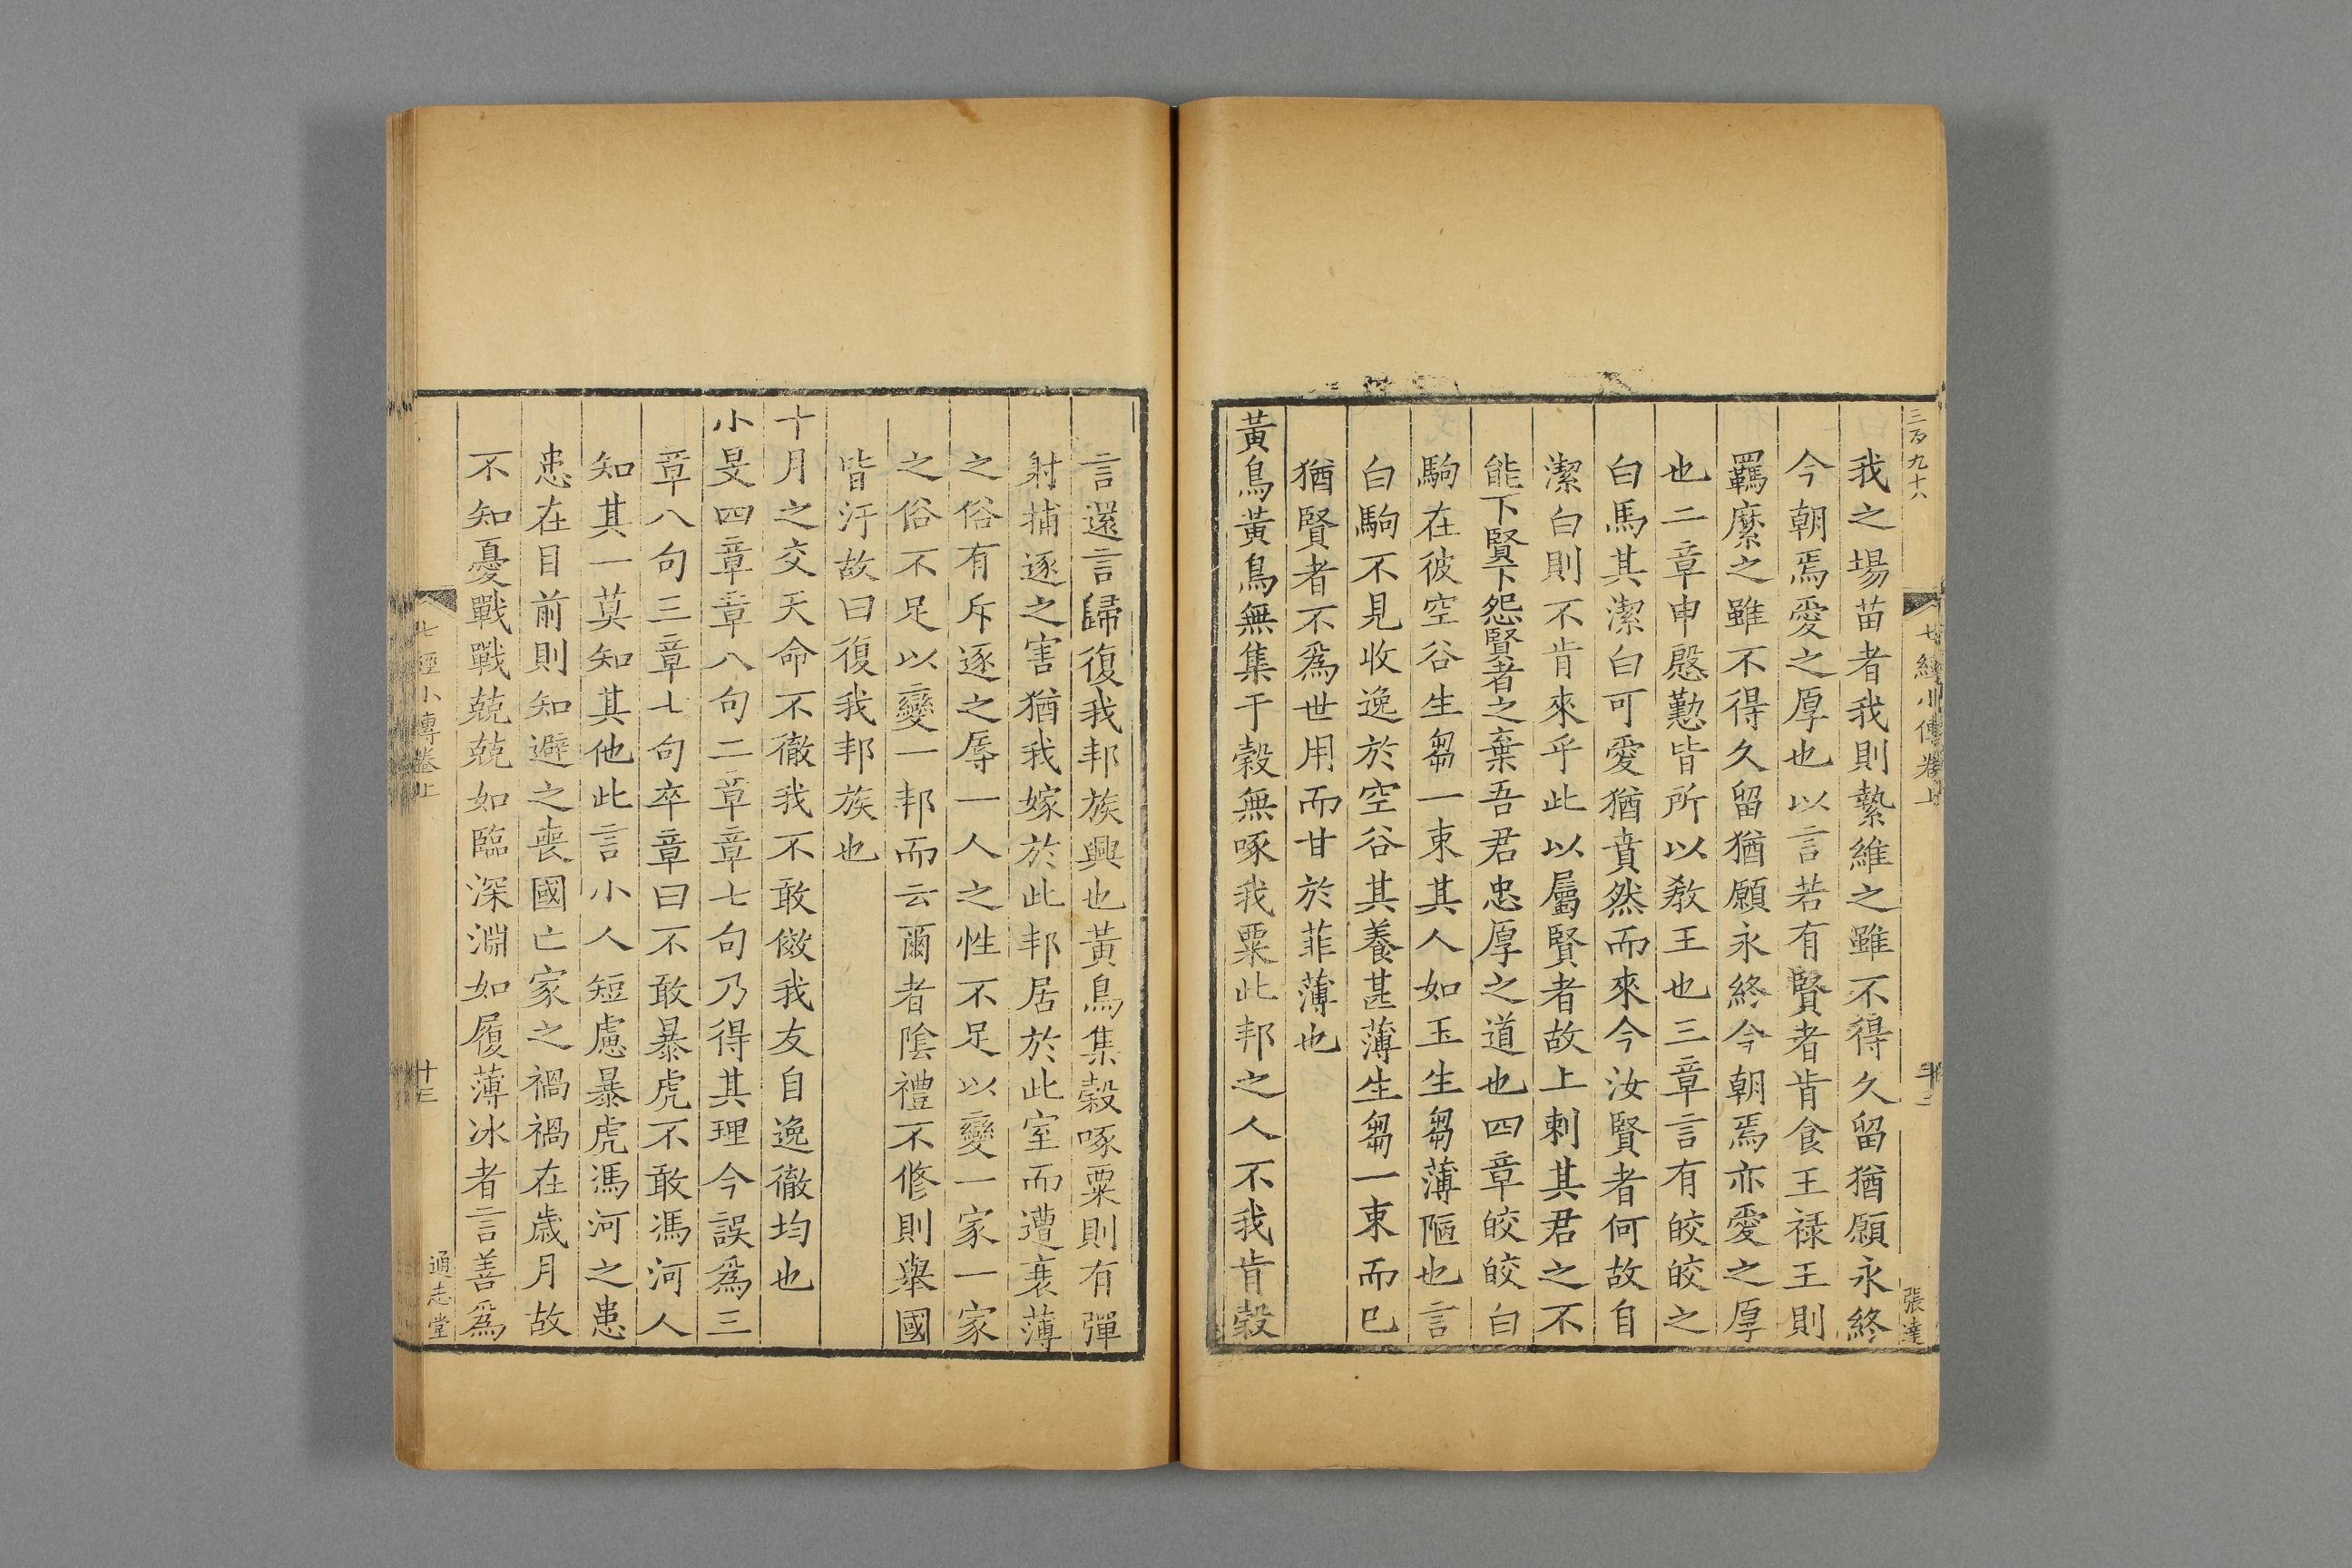 三百九十八
七經小傳卷上
張達
我之場苗者我則縶維之雖不得久留猶願永終
今朝焉愛之厚也以言若有賢者肯食王祿王則
羈縻之雖不得久留猶願永終今朝焉亦愛之厚
也二章申慇懃皆所以敎王也三章言有皎皎之
白馬其潔白可愛猶賁然而來今汝賢者何故自
潔白則不肯來乎此以屬賢者故上刺其君之不
能下賢下怨賢者之棄吾君忠厚之道也四章皎皎白
駒在彼空谷生芻一束其人如玉生芻薄陋也言
白駒不見收逸於空谷其養甚薄生芻一束而巳
猶賢者不爲世用而甘於菲薄也
黃鳥黃鳥無集于榖無啄我粟此邦之人不我肯榖
言還言歸復我邦族興也黃鳥集榖啄粟則有彈
射捕逐之害猶我嫁於此邦居於此室而遭衰薄
之俗有斥逐之辱一人之性不足以變一家一家
之俗不足以變一邦而云爾者陰禮不修則舉國
皆汙故曰復我邦族也
十月之交天命不徹我不敢傚我友自逸徹均也
小旻四章章八句二章章七句乃得其理今誤爲三
章八句三章七句卒章曰不敢暴虎不敢馮河人
知其一莫知其他此言小人短慮暴虎馮河之患
患在目前則知避之喪國亡家之禍禍在歲月故
不知憂戰戰兢兢如臨深淵如履薄冰者言善爲
七經小傳卷上
十三
通志堂